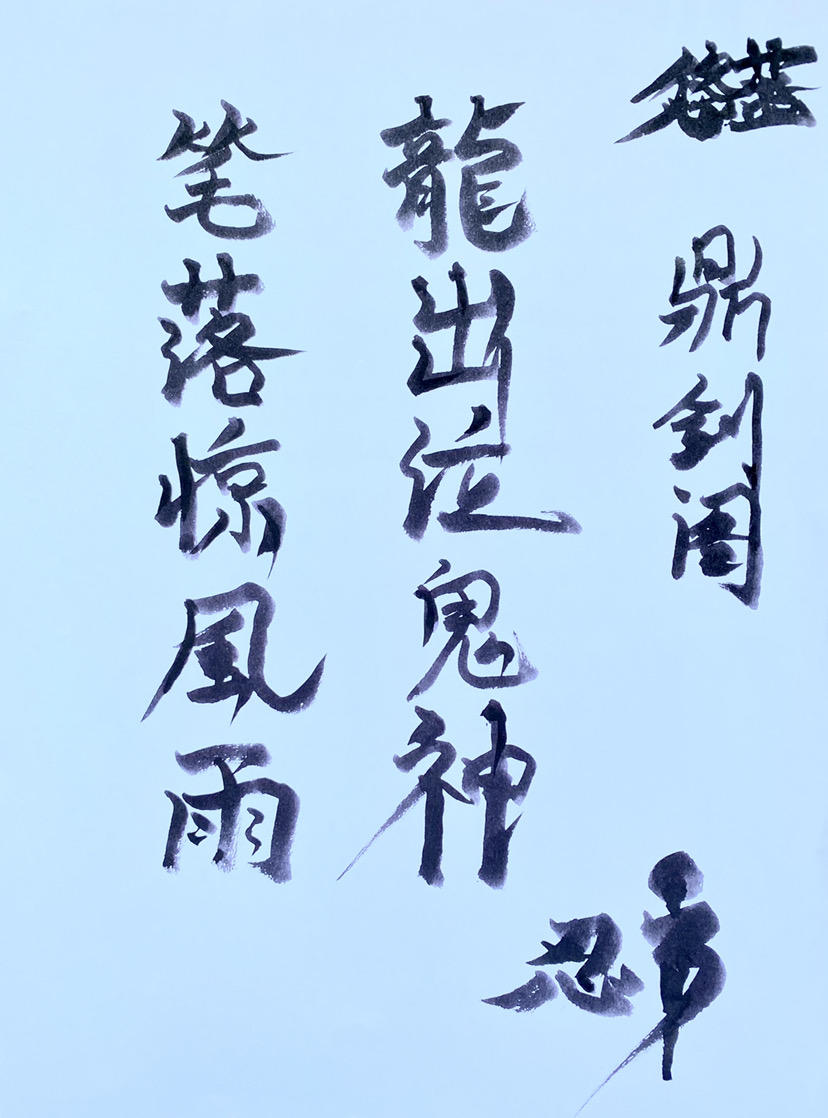 鼎剑阁
龍出泣鬼神
笔落惊風雨
忍